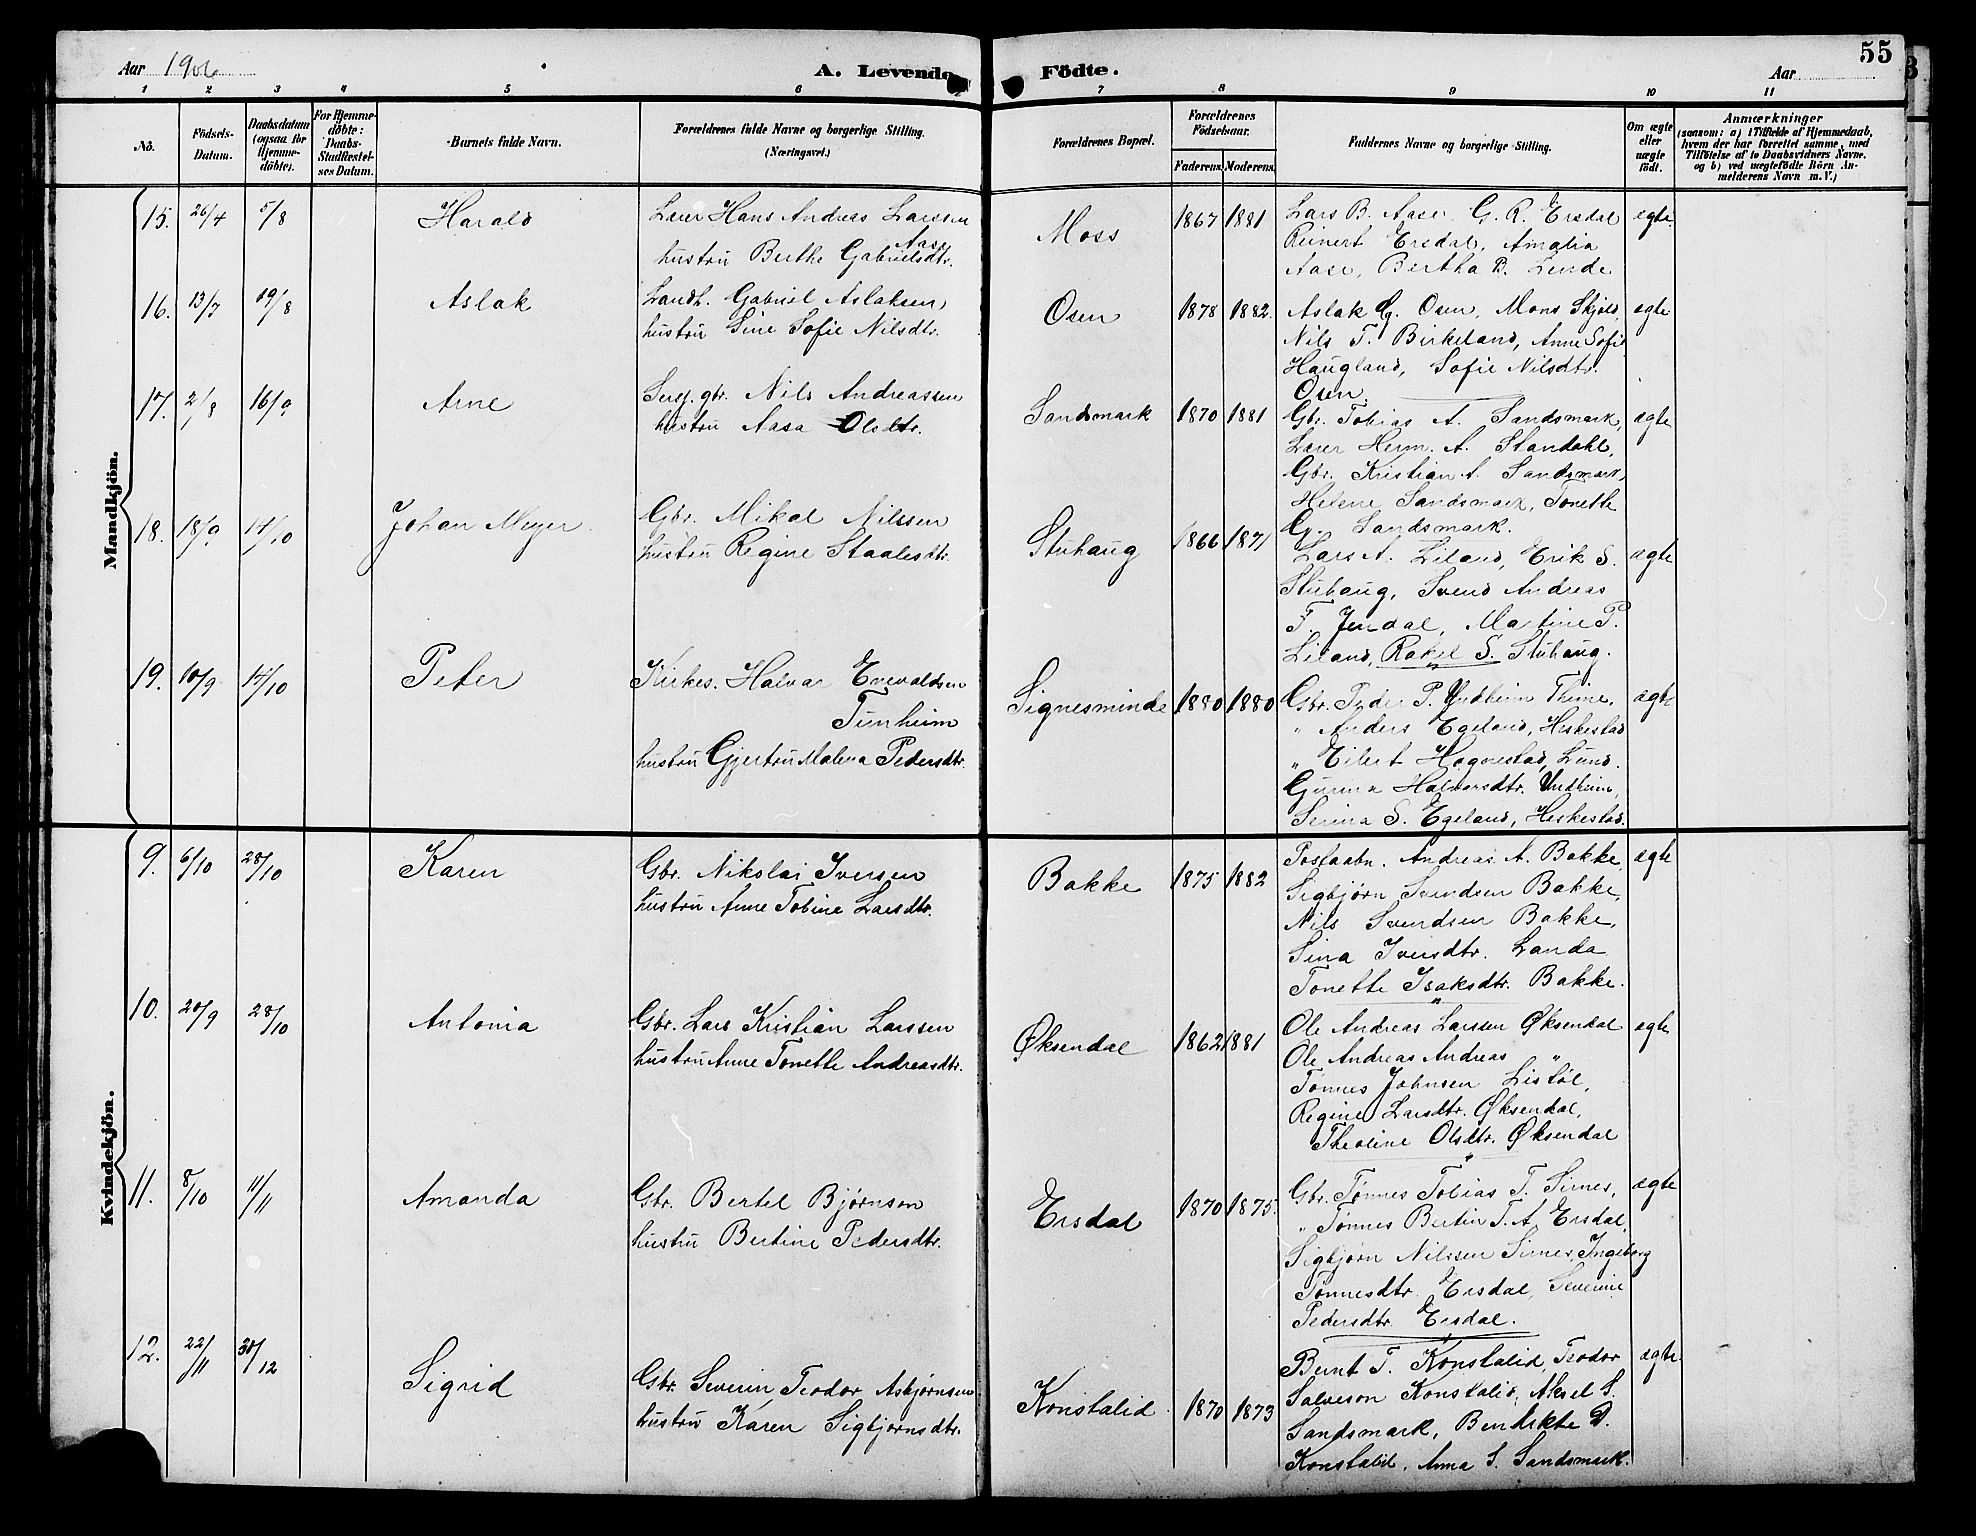 Aar 1906
A. Levende Födte.
Aar
55
1 2 3 4 5 6 7 8 9 10 11
No.
Födsels-
Datum.
Daabsdatum
(ogsaa for
Hjemme-
døbte).
For Hjemme-
døbte:
Daabs-
Stadfæstel-
ses Datum.
Barnets fulde Navn.
Forældrenes fulde Navne og borgerlige Stilling.
(Næringsvei.)
Forældrenes Bopæl.
Forældrenes
Födselsaar.
Faderens. Moderens.
Faddernes Navne og borgerlige Stilling.
Om ægte
eller
uægte
födt.
Anmærkninger
(saasom: a) i Tilfælde af Hjemmedaab,
hvem der har forrettet samme, med
Tilföielse af to Daabsvidners Navne.
og b) ved uægtefödte Börn An-
melderens Navn m. V.)
Mandkjön.
15. 26/4 5/8 Harald
Lærer Hans Andreas Larssen
Aase
hustru Berthe Gabrielsdtr.
Moss 1867 1881
Lars B. Aase, G. R. Ersdal
Reinert Ersdal, Amalia
Aase, Bertha B. Linde
ægte
16. 13/7 19/8 Aslak
Landh. Gabriel Aslaksen
hustru Sine Sofie Nilsdtr.
Osen 1878 1882.
Aslak G. Osen, Mons Skjold,
Nils T. Birkeland, Anne Sofie
Haugland, Sofie Nilsdtr.
Osen.
ægte
17. 2/8 16/9 Arne
Serg. gbr. Nils Andreassen
hustru Aasa Olsdtr.
Sandsmark 1870 1881
Gbr. Tobias A. Sandsmark,
Lærer Herm. A. Standahl,
Gbr. Kristian A. Sandsmark,
Helene Sandsmark, Tonette
G. Sandsmark.
ægte
18. 18/9 14/10 Johan Meyer
Gbr. Mikal Nilssen
hustru Regine Staalesdtr.
Stuhaug 1866 1871
Lars A. Liland, Erik S.
Stuhaug, Svend Andreas
F. Jendal, Martine P.
Liland, Rakel S. Stuhaug.
ægte
19. 10/9 14/10 Peter
Kirkes. Halvar Enevaldsen
Tunheim
hustru Gjertru Malena Pedersdtr.
Signesminde 1880 1880
Gbr. Peder P. Undheim Thime,
" Anders Egeland, Heskestad
" Eilert Hognestad, Lund.
Gurina Halvorsdtr. Undheim,
Serina S. Egeland, Heskestad.
ægte
Kvindekjön.
9. 6/10 28/10 Karen
Gbr. Nikolai Iversen
hustru Anne Tobine Larsdtr.
Bakke 1875 1882
Postaabn. Andreas A. Bakke,
Sigbjørn Svendsen Bakke,
Nils Svendsen Bakke,
Sina Iversdtr. Landa
Tonette Isaksdtr. Bakke.
ægte
10. 20/9 28/10 Antonia
Gbr. Lars Kristian Larssen
hustru Anne Tonette Andreasdtr.
Øksendal 1862 1881
Ole Andreas Larsen Øksendal
Ole Andreas Andreas "
Tønnes Johnsen Listøl,
Regine Larsdtr. Øksendal,
Theoline Olsdtr. Øksendal
ægte
11. 8/10 11/11 Amanda
Gbr. Bertel Bjørnson
hustru Bertine Pedersdtr.
Ersdal 1870 1875.
Gbr. Tønnes Tobias T. Sirnes,
" Tønnes Bertin T. A. Ersdal,
Sigbjørn Nilssen Sirnes, Ingeborg
Tønnesdtr. Ersdal, Severine
Pedersdtr. Ersdal.
ægte
12. 22/11 30/12 Sigrid
Gbr. Severin Teodor Asbjørnsen
hustru Karen Sigbjørnsdtr.
Konstalid 1870 1873
Bernt T. Konstalid, Teodor
Salveson Konstalid, Aksel S.
Sandsmark, Bendikte D.
Konstalid, Anna S. Sandsmark.
ægte.